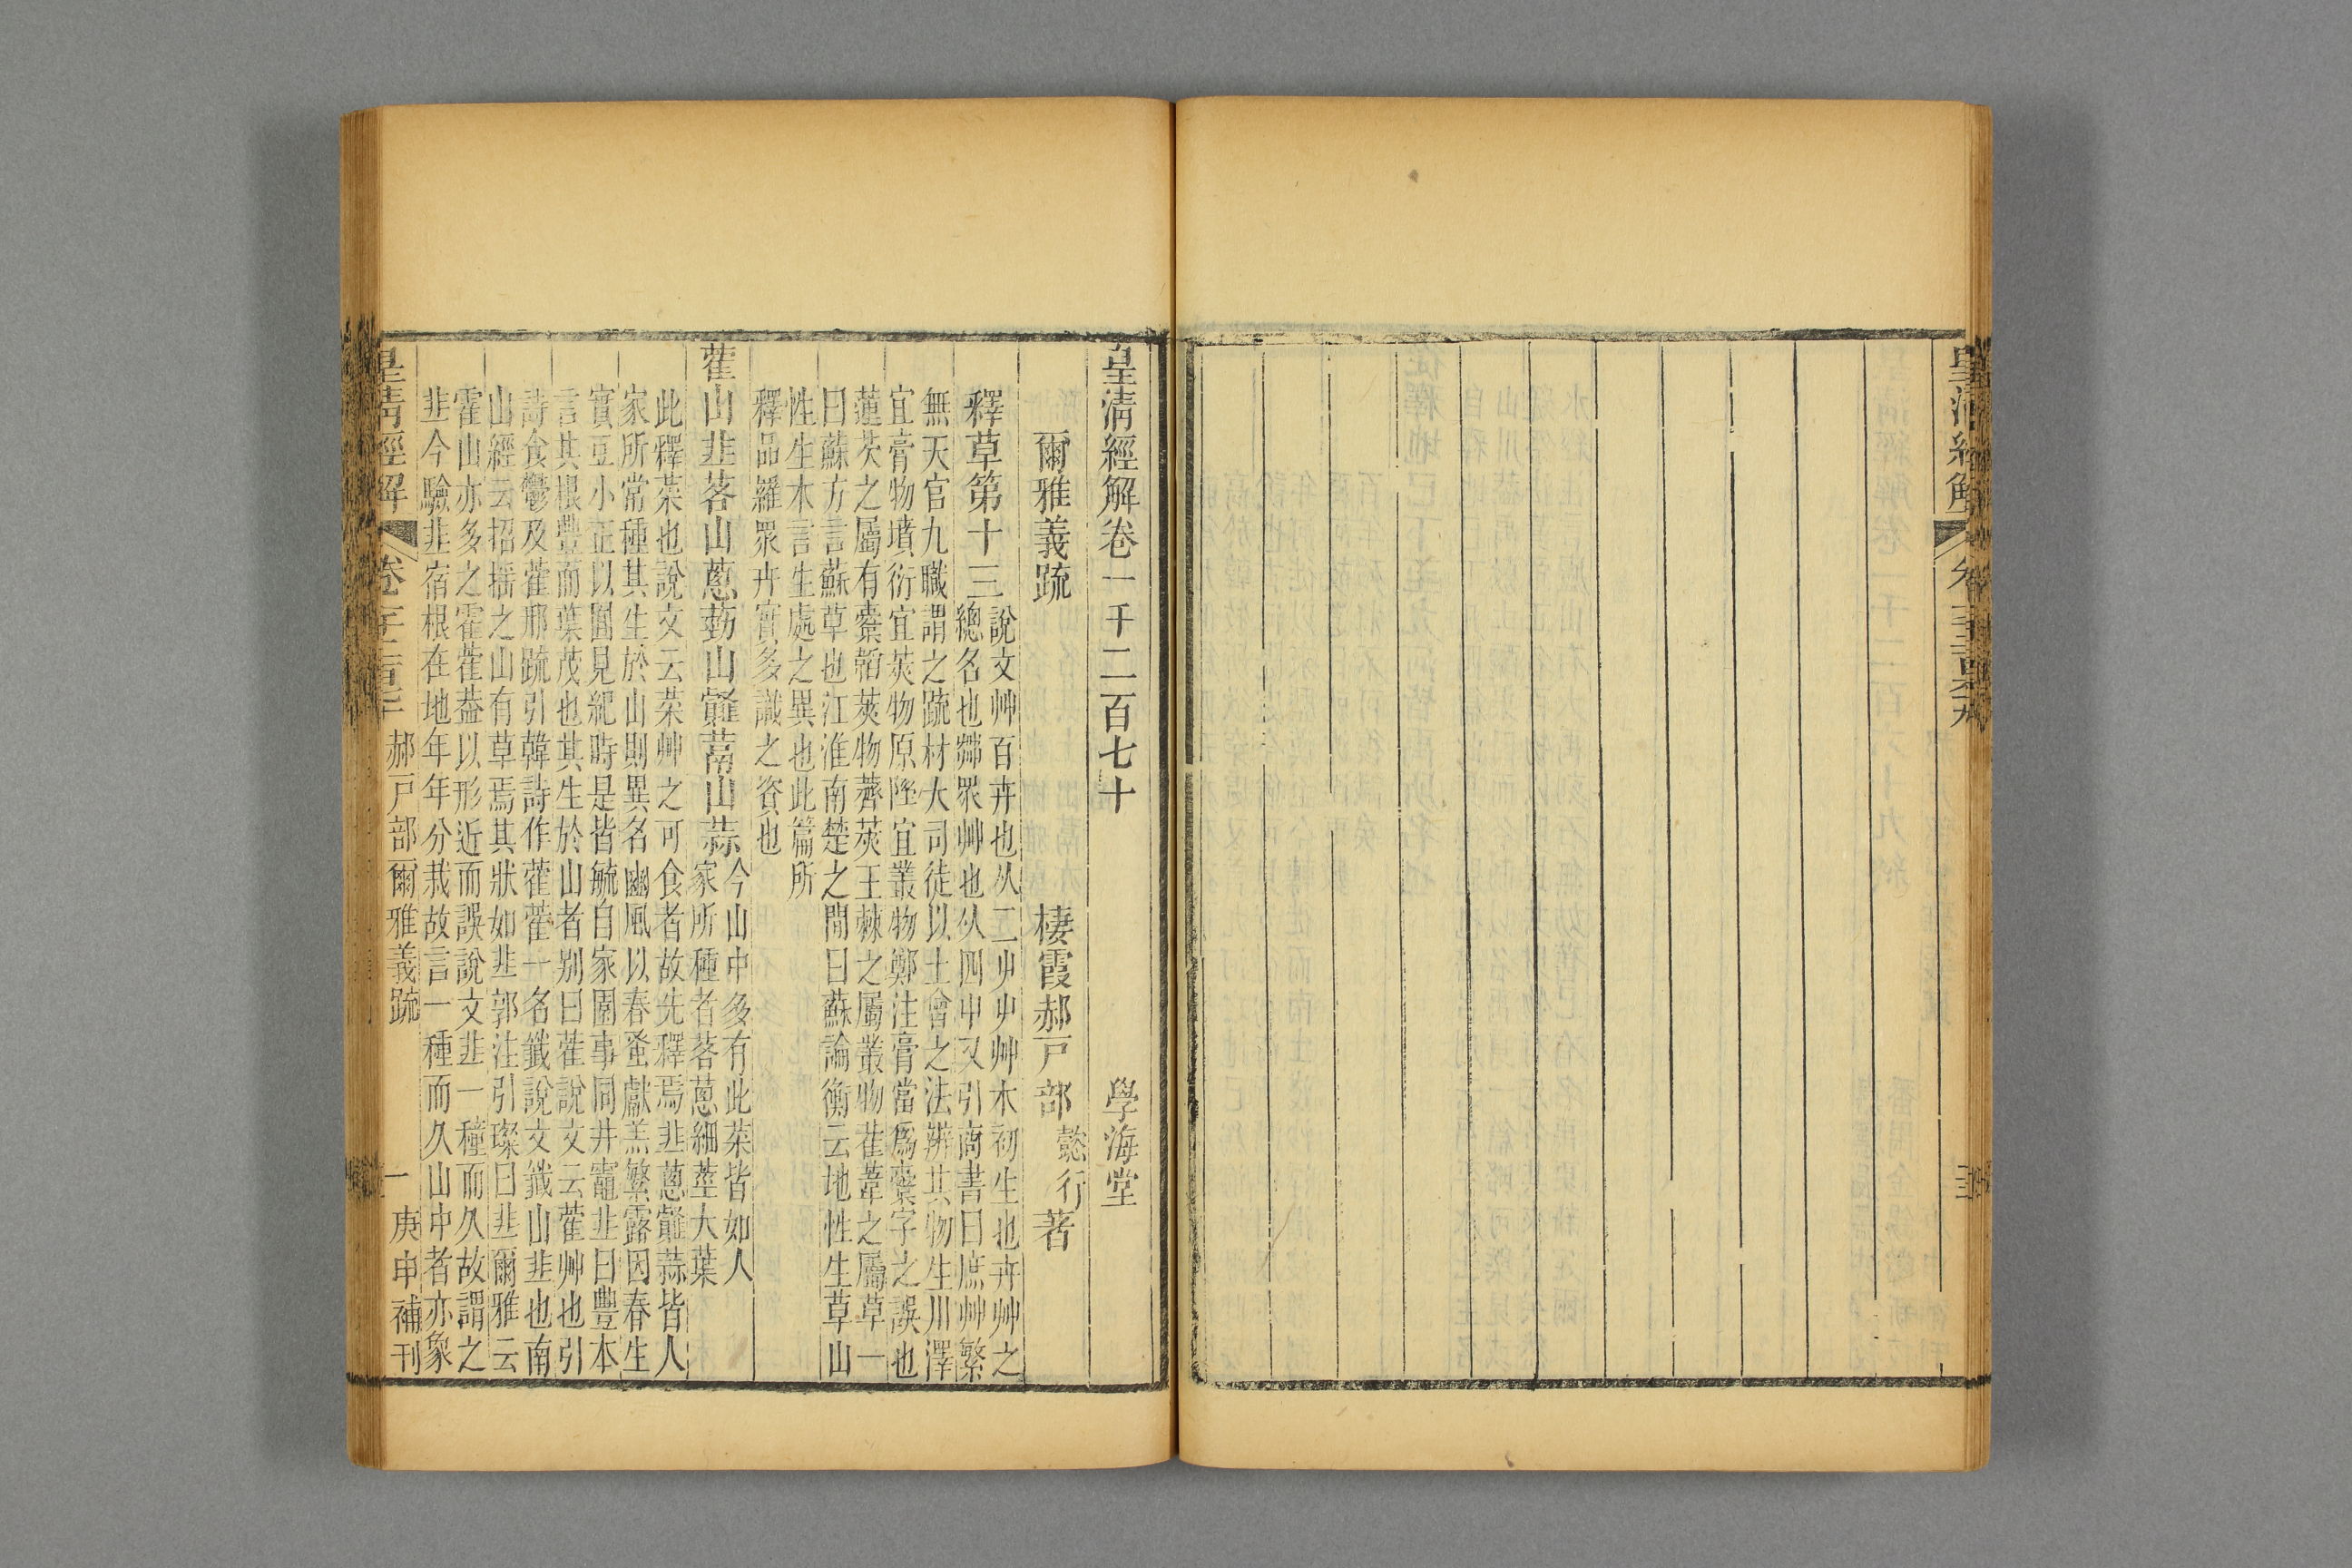 皇清經解卷一千二百七十
學海堂
爾雅義疏
棲霞郝戸部懿行著
釋草第十三
說文艸百卉也从二屮屮艸木初生也卉艸之
總名也芔眾艸也从四屮又引商書曰庶艸繁
無天官九職謂之疏材大司徒以土會之法辨其物生川澤
宜膏物墳衍宜莢物原隰宜叢物鄭注膏當為櫜字之誤也
蓮芡之屬有櫜韜莢物薺莢王棘之屬叢物萑葦之屬草一
曰蘇方言蘇草也江淮南楚之閒曰蘇論衡云地性生草山
性生木言生處之異也此篇所
釋品羅眾卉實多識之資也
藿山韭茖山蔥葝山䪥蒚山蒜
今山中多有此菜皆如人
家所種者茖蔥細莖大葉
此釋菜也說文云菜艸之可食者故先釋焉韭蔥䪥蒜皆人
家所常種其生於山則異名豳風以春蚤獻羔繁露因春生
實豆小正以囿見紀時是皆毓自家園事同井竈韭曰豐本
言其根豐而葉茂也其生於山者別曰藿說文云藿艸也引
詩食鬱及藿邢疏引韓詩作藿藿一名韱說文韱山韭也南
山經云招搖之山有草焉其狀如韭郭注引璨曰韭爾雅云
霍山亦多之霍藿葢以形近而誤說文韭一種而久故謂之
韭今驗韭宿根在地年年分栽故言一種而久山中者亦象
皇清經解
卷一千二百七十
郝戸部爾雅義疏
一
庚申補刊
皇清經解